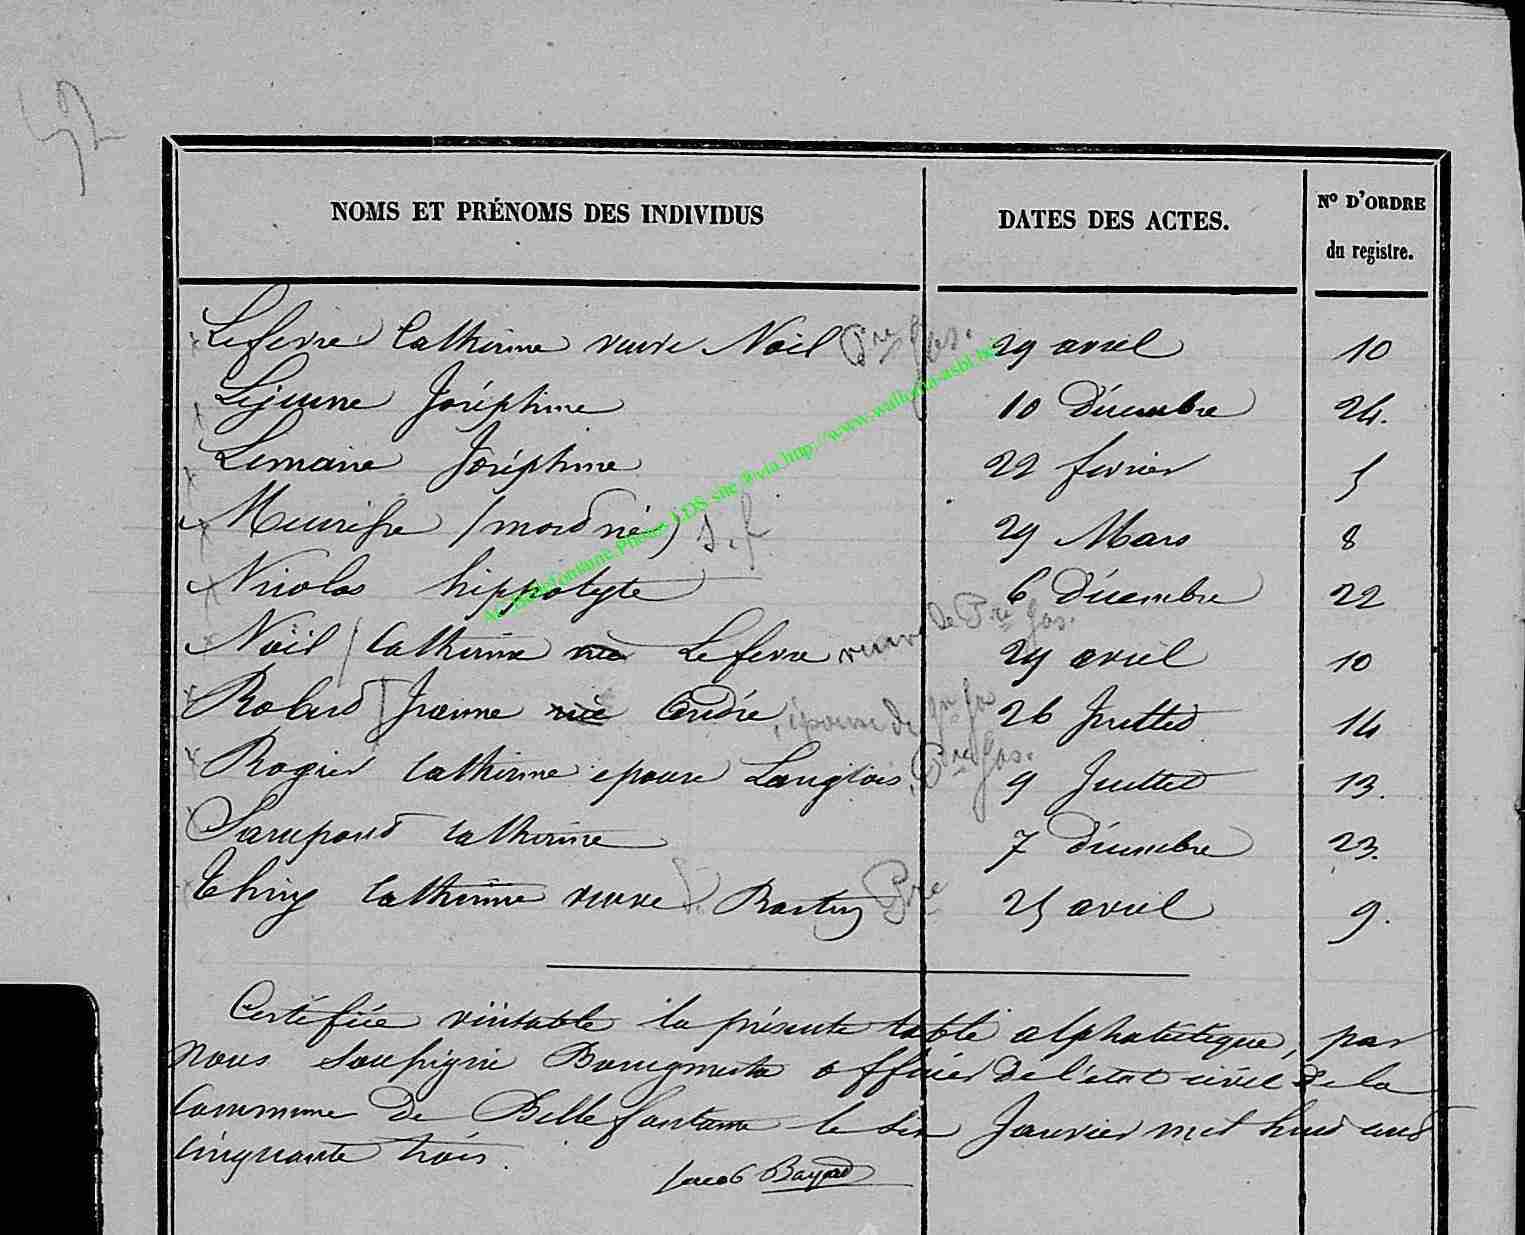 52
NOMS ET PRÉNOMS DES INDIVIDUS DATES DES ACTES. N° D'ORDRE du registre.
Lefevre Catherine veuve Noël Pre Jos. 29 avril 10
Lejeune Joséphine 10 Décembre 24.
Lemaire Joséphine 22 fevrier 5
Meurisse (mord né) s.f 29 Mars 8
Nicolas hippolyte 6 Décembre 22
Noël / Catherine née Lefevre veuve de Pre Jos. 29 avril 10
Robert / Jeanne née André, épouse de Jn Jos 26 Juillet 14
Rogier Catherine epouse Langlois, Pre Jos. 9 Juillet 13.
Sampont Catherine 7 décembre 23.
Thiry Catherine veuve Bastin Pre 25 avril 9.
Certifiée véritable la présente table alphabétique, par
Nous soussigné officier de l'état civil de la
Commune de Bellefontaine le six Janvier mil huit cent
cinquante trois.
Jacob Bayard
Ac Bellefontaine Photos LDS site J.via http://www.wallonia-asbl.be/